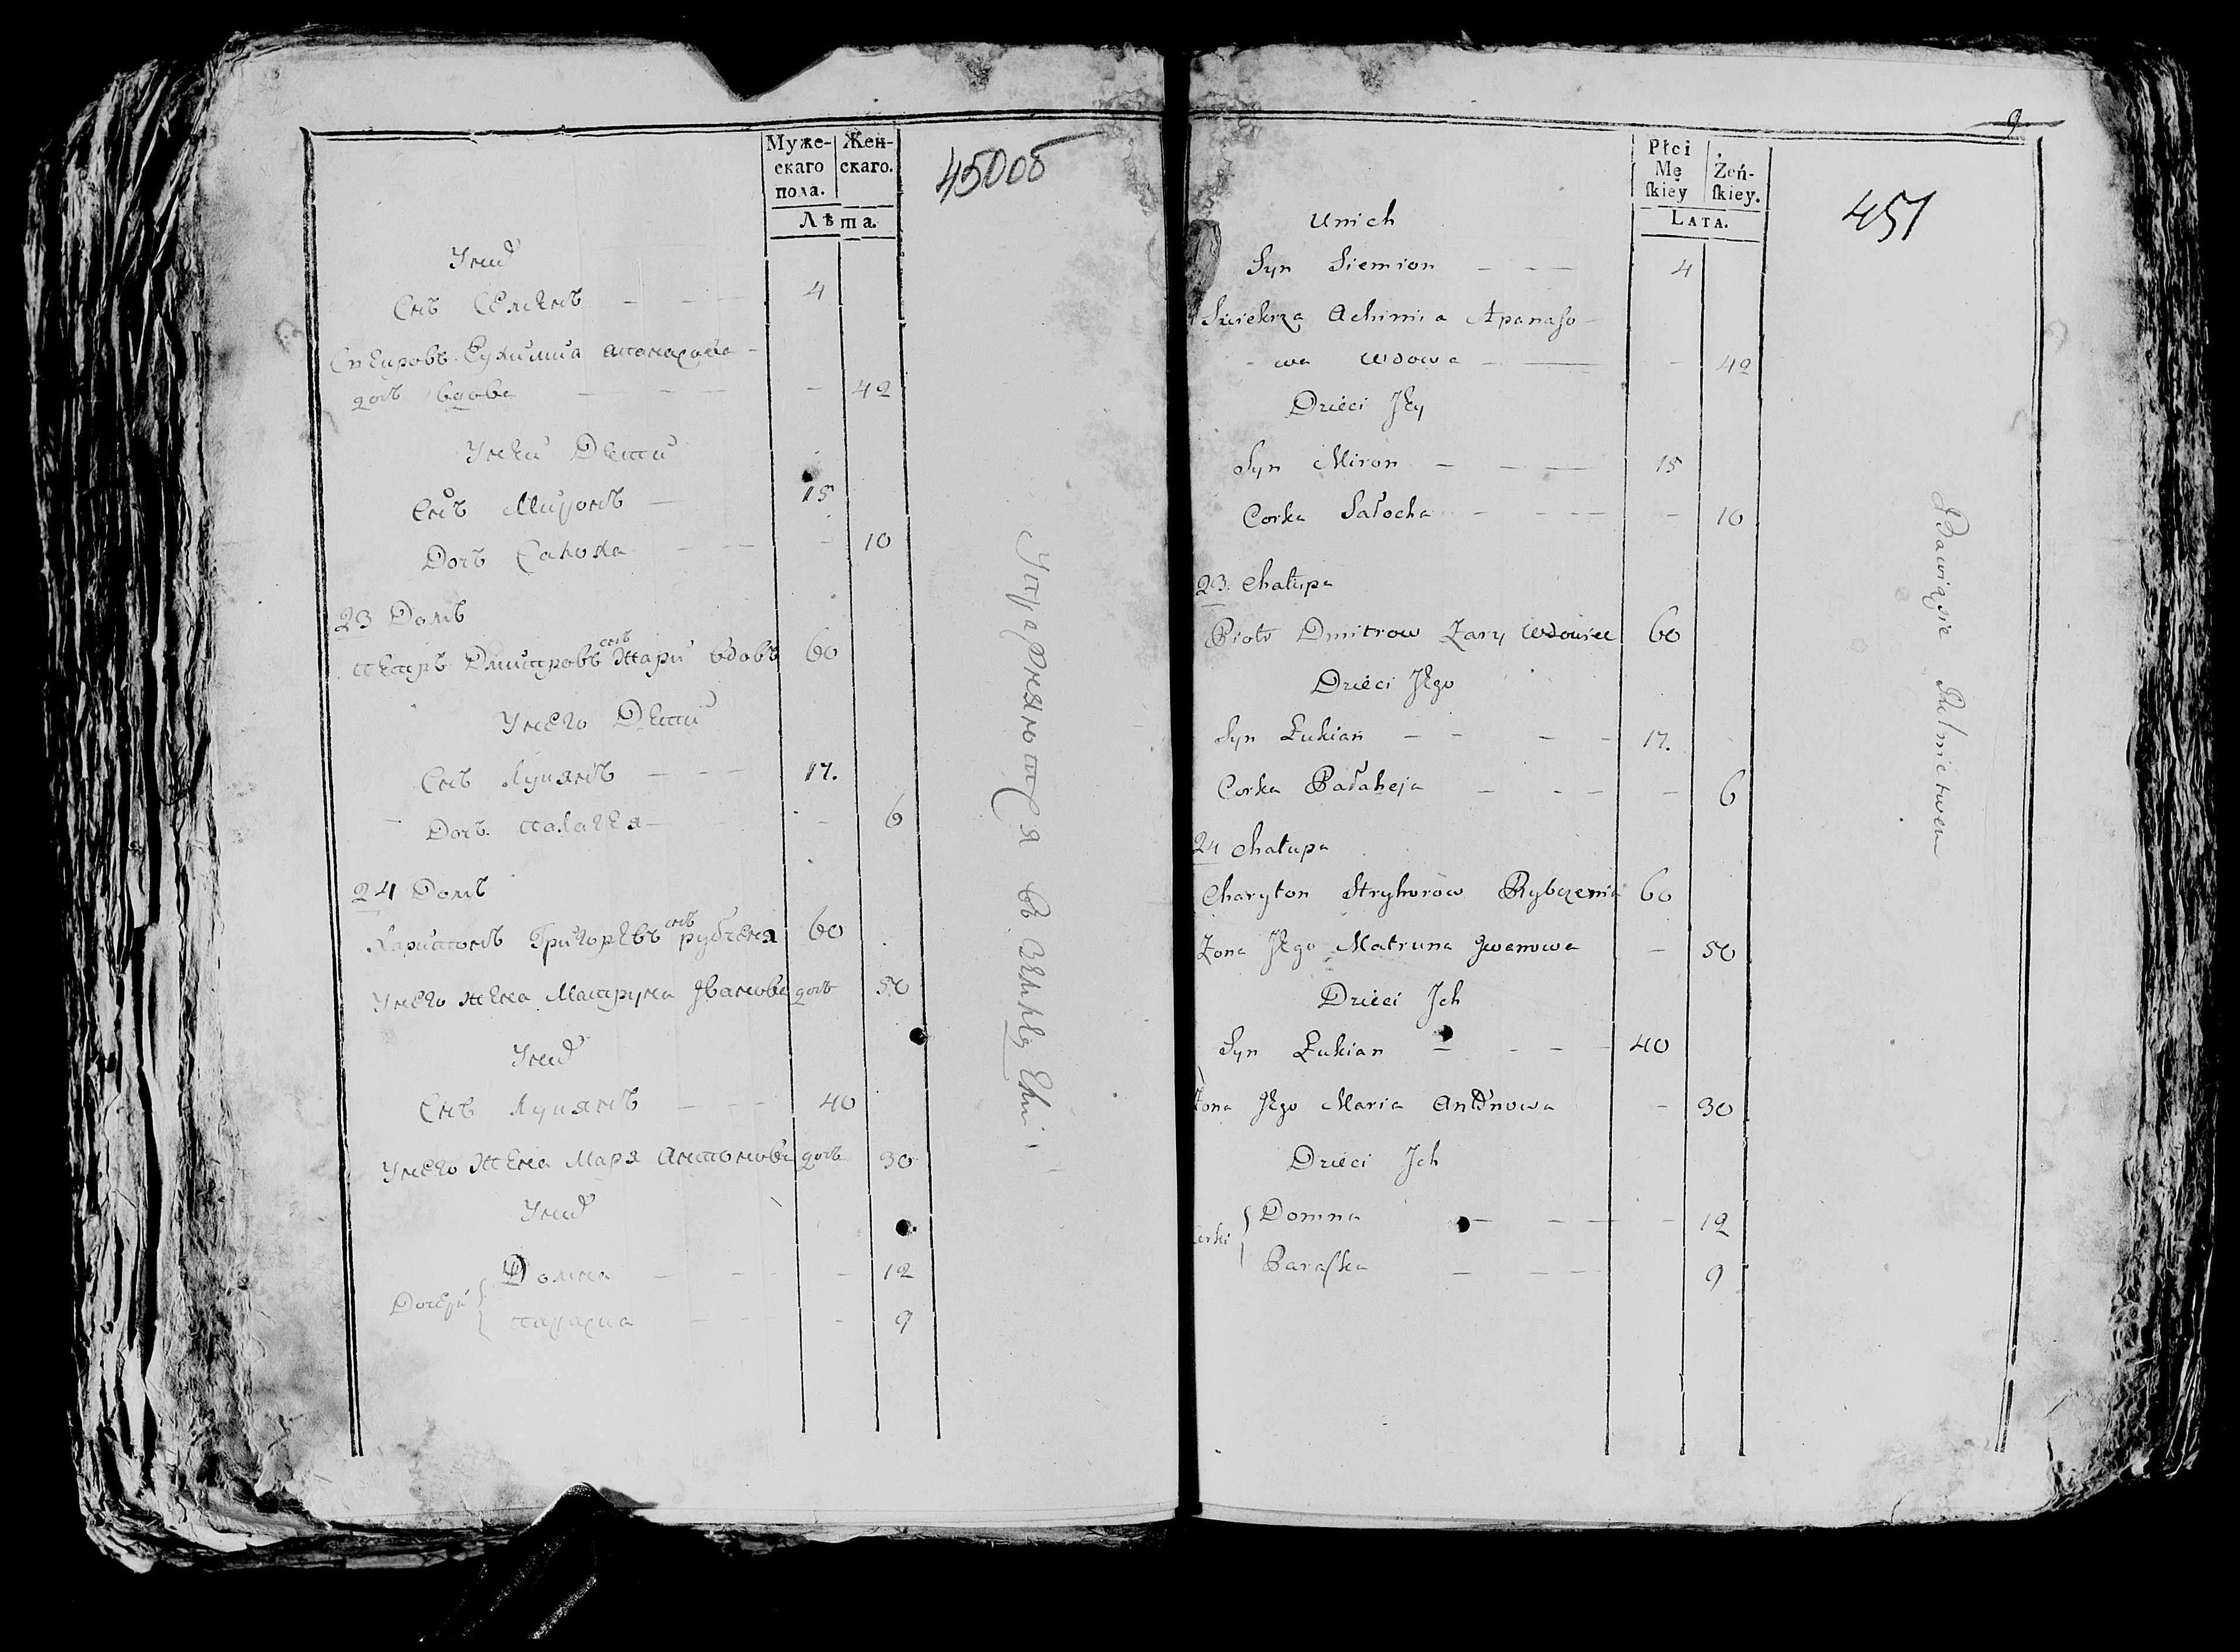 Муже-
скаго
пола.
Жен-
скаго.
Лѣта.
450об
Унихъ
Снъ Семенъ — — — 4
Свекровь Ехимиа Апанасова
дочь вдова — — — 42
Унеи Дети
Снъ Миронъ — 15
Дочь Салоха — — — 10
23 Домъ
Петръ Дмитровъ снъ Жари вдовъ 60
Унего Дети
Снъ Лукянъ — — — 17.
Дочь Палагея — — 6
24 Домъ
Харитонъ Григоревъ снъ рубченя 60
Унего жена Матруна Иванова дочь 50
Унихъ
Снъ Лукянъ — — — 40
Унего жена Маря Антонова дочь 30
Унихъ
Дочери { Домна — — — — 12
Параска — — — — 9
Упражняютса въ земледелии
9
Płci
Mę
skiey
Żeń-
skiey.
LATA.
451
Unich
Syn Siemion — — — 4
Swiekrza Achimia Apanaso-
- wa Wdowa — — — 42
Dzieci Jey
Syn Miron — — — 15
Corka Sałocha — — — — 10
23 Chałupa
Piotr Dmitrow Zary Wdowiec 60
Dzieci Jego
Syn Łukian — — — — 17.
Corka Pałaheja — — — — 6
24 Chałupa
Charyton Hryhorow Rybczenia 60
Zona Jego Matruna Jwanowa — 50
Dzieci Jch
Syn Łukian — — — — 40
Zona Jego Maria Antonowa — 30
Dzieci Jch
Corki { Domna — — — — 12
Paraska — — — 9
Bawiąsie Rolnictwem